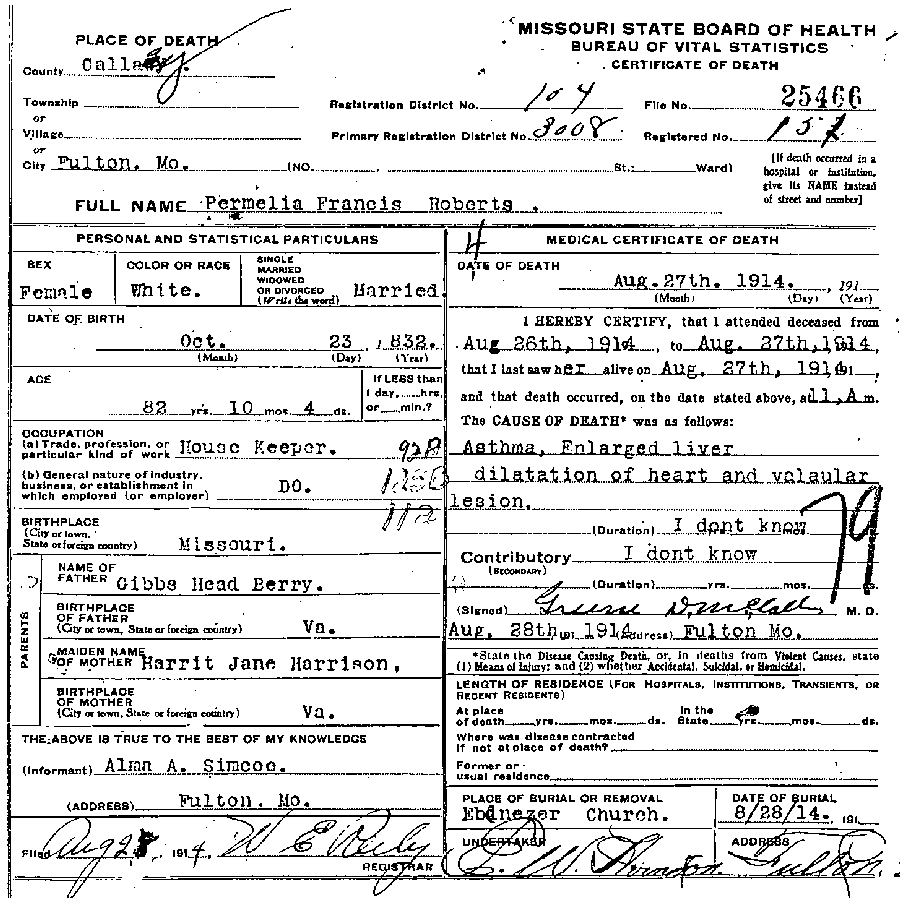 MISSOURI STATE BOARD OF HEALTH
BUREAU OF VITAL STATISTICS
CERTIFICATE OF DEATH
PLACE OF DEATH
County
Township
or
Village
or
City Fulton. Mo. (NO. St.; Ward)
Registration District No. 104 File No. 25466
Primary Registration District No. 3008 Registered No. 157
[If death occurred in a
hospital or institution,
give its NAME instead
of street and number]
FULL NAME Permelia Francis Roberts .
PERSONAL AND STATISTICAL PARTICULARS
SEX
Female
COLOR OR RACE
White.
SINGLE
MARRIED
WIDOWED
OR DIVORCED
(Write the word) Married.
DATE OF BIRTH
Oct. 23 , 1832.
(Month) (Day) (Year)
AGE
82 yrs. 10 mos. 4 ds.
If LESS than
1 day, hrs.
or min.?
OCCUPATION
(a) Trade, profession, or
particular kind of work House Keeper.
(b) General nature of industry,
business, or establishment in
which employed (or employer) DO.
BIRTHPLACE
(City or town,
State or foreign country) Missouri.
PARENTS
NAME OF
FATHER Gibbs Head Berry.
BIRTHPLACE
OF FATHER
(City or town, State or foreign country) Va.
MAIDEN NAME
OF MOTHER Harrit Jane Harrison,
BIRTHPLACE
OF MOTHER
(City or town, State or foreign country) Va.
THE ABOVE IS TRUE TO THE BEST OF MY KNOWLEDGE
(Informant) Alma A. Simcoe.
(ADDRESS) Fulton. Mo.
Filed Aug 28 1914 W E
REGISTRAR
MEDICAL CERTIFICATE OF DEATH
4
DATE OF DEATH
Aug. 27th. 1914. , 191
(Month) (Day) (Year)
I HEREBY CERTIFY, that I attended deceased from
Aug 26th, 1914 , to Aug. 27th, 1914,
that I last saw her alive on Aug. 27th, 1914 ,
and that death occurred, on the date stated above, at 11, A m.
The CAUSE OF DEATH* was as follows:
Asthma, Enlarged liver
dilatation of heart and valaular
lesion.
79
(Duration) I dont know
Contributory I dont know
(SECONDARY)
(Duration) yrs. mos. ds.
(Signed) M. D.
Aug. 28th, 1914 (Address) Fulton Mo.
*State the Disease Causing Death, or, in deaths from Violent Causes, state
(1) Means of Injury; and (2) whether Accidental, Suicidal, or Homicidal.
LENGTH OF RESIDENCE (FOR HOSPITALS, INSTITUTIONS, TRANSIENTS, OR
RECENT RESIDENTS)
At place
of death yrs. mos. ds.
In the
State yrs. mos. ds.
Where was disease contracted
if not at place of death?
Former or
usual residence
PLACE OF BURIAL OR REMOVAL
Ebenezer Church.
DATE OF BURIAL
8/28/14. , 191
UNDERTAKER
ADDRESS
Fulton